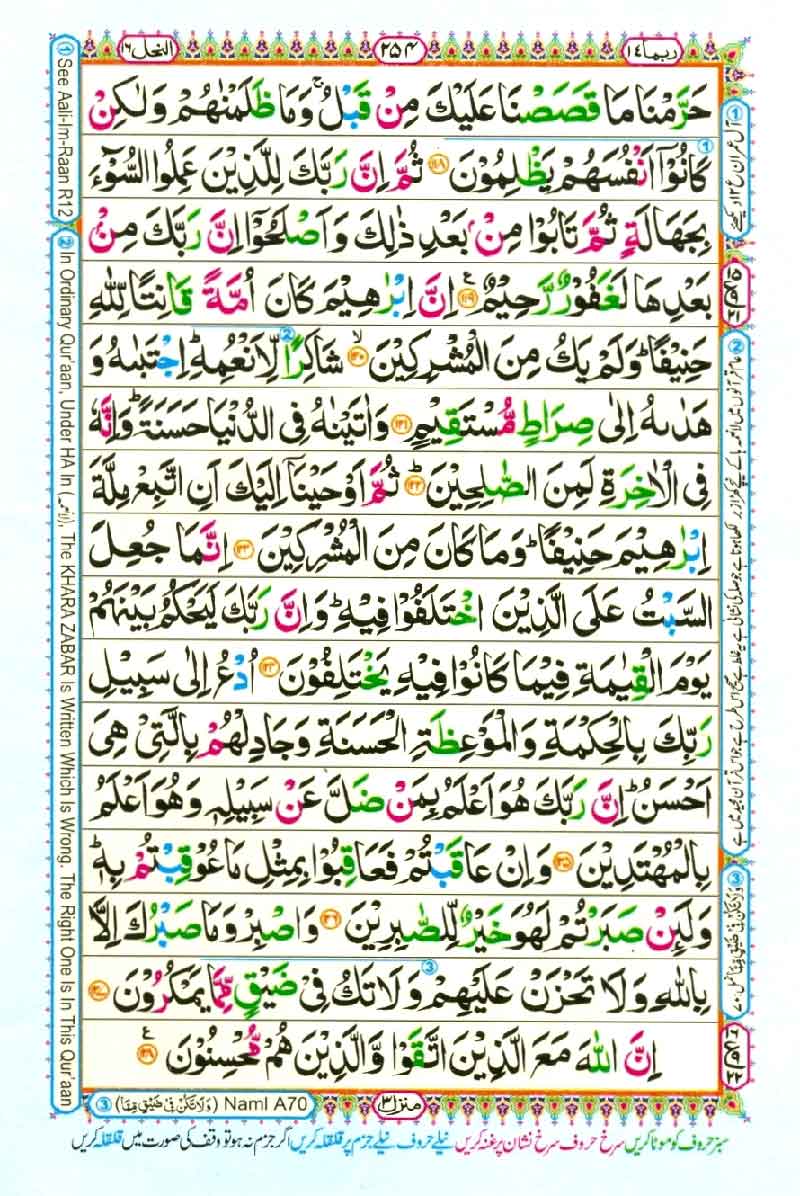 ربما ١٤
٢٥٤
النحل ١٦
حَرَّمْنَا مَا قَصَصْنَا عَلَيْكَ مِنْ قَبْلُ ۚ وَمَا ظَلَمْنٰهُمْ وَلٰكِنْ
كَانُوْۤا اَنْفُسَهُمْ يَظْلِمُوْنَ ﴿١١٨﴾ ثُمَّ اِنَّ رَبَّكَ لِلَّذِيْنَ عَمِلُوا السُّوْٓءَ
بِجَهَالَةٍ ثُمَّ تَابُوْا مِنْۢ بَعْدِ ذٰلِكَ وَاَصْلَحُوْۤا اِنَّ رَبَّكَ مِنْۢ
بَعْدِهَا لَغَفُوْرٌ رَّحِيْمٌ ﴿١١٩﴾ ع اِنَّ اِبْرٰهِيْمَ كَانَ اُمَّةً قَانِتًا لِّلّٰهِ
حَنِيْفًا ؕ وَلَمْ يَكُ مِنَ الْمُشْرِكِيْنَ ﴿١٢٠﴾ ۙ شَاكِرًا لِّاَنْعُمِهٖ ؕ اِجْتَبٰىهُ وَ
هَدٰىهُ اِلٰى صِرَاطٍ مُّسْتَقِيْمٍ ﴿١٢١﴾ وَاٰتَيْنٰهُ فِى الدُّنْيَا حَسَنَةً ؕ وَاِنَّهٗ
فِى الْاٰخِرَةِ لَمِنَ الصّٰلِحِيْنَ ؕ ﴿١٢٢﴾ ثُمَّ اَوْحَيْنَاۤ اِلَيْكَ اَنِ اتَّبِعْ مِلَّةَ
اِبْرٰهِيْمَ حَنِيْفًا ؕ وَمَا كَانَ مِنَ الْمُشْرِكِيْنَ ﴿١٢٣﴾ اِنَّمَا جُعِلَ
السَّبْتُ عَلَى الَّذِيْنَ اخْتَلَفُوْا فِيْهِ ؕ وَاِنَّ رَبَّكَ لَيَحْكُمُ بَيْنَهُمْ
يَوْمَ الْقِيٰمَةِ فِيْمَا كَانُوْا فِيْهِ يَخْتَلِفُوْنَ ﴿١٢٤﴾ اُدْعُ اِلٰى سَبِيْلِ
رَبِّكَ بِالْحِكْمَةِ وَالْمَوْعِظَةِ الْحَسَنَةِ وَجَادِلْهُمْ بِالَّتِىْ هِىَ
اَحْسَنُ ؕ اِنَّ رَبَّكَ هُوَ اَعْلَمُ بِمَنْ ضَلَّ عَنْ سَبِيْلِهٖ وَهُوَ اَعْلَمُ
بِالْمُهْتَدِيْنَ ﴿١٢٥﴾ وَاِنْ عَاقَبْتُمْ فَعَاقِبُوْا بِمِثْلِ مَا عُوْقِبْتُمْ بِهٖ ؕ
وَلَئِنْ صَبَرْتُمْ لَهُوَ خَيْرٌ لِّلصّٰبِرِيْنَ ﴿١٢٦﴾ وَاصْبِرْ وَمَا صَبْرُكَ اِلَّا
بِاللّٰهِ وَلَا تَحْزَنْ عَلَيْهِمْ وَلَا تَكُ فِىْ ضَيْقٍ مِّمَّا يَمْكُرُوْنَ ﴿١٢٧﴾
اِنَّ اللّٰهَ مَعَ الَّذِيْنَ اتَّقَوْا وَّالَّذِيْنَ هُمْ مُّحْسِنُوْنَ ﴿١٢٨﴾ ع
① آل عمران ع ۱۲ دیکھئے
① See Aali-Im-Raan R12
② In Ordinary Qur'aan, Under HA In (لانعمہ), The KHARA ZABAR Is Written Which Is Wrong. The Right One Is In This Qur'aan
منزل ٣
③ (وَلَا تَكُنْ فِىْ ضَيْقٍ مِّمَّا) Naml A70
سبز حروف کو موٹا کریں سرخ حروف سرخ نشان پر غنہ کریں نیلے حروف نیلے جزم پر قلقلہ کریں اگر جزم نہ ہو تو وقف کی صورت میں قلقلہ کریں